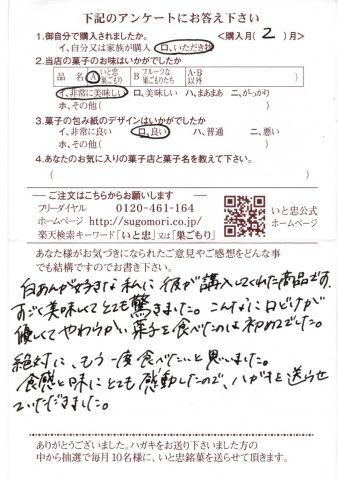 下記のアンケートにお答え下さい
1.御自分で購入されましたか。 <購入月( 2 )月>
イ、自分又は家族が購入 ロ、いただき物
2.当店の菓子のお味はいかがでしたか
品 名 A いと忠巣ごもり B フルーツな巣ごもりたち A・B以外
イ、非常に美味しい ロ、美味しい ハ、まあまあ ニ、がっかり
ホ、その他( )
3.菓子の包み紙のデザインはいかがでしたか
イ、非常に良い ロ、良い ハ、普通 ニ、悪い
ホ、その他( )
4.あなたのお気に入りの菓子店と菓子名を教えて下さい。
( )
ご注文はこちらからお願いします
フリーダイヤル 0120-461-164
ホームページ http://sugomori.co.jp/
楽天検索キーワード「いと忠」又は「巣ごもり」
いと忠公式
ホームページ
あなた様がお気づきになられたご意見やご感想をどんな事
でも結構ですのでお書き下さい。
白あんが好きな私に彼が購入してくれた商品です。
すごく美味しくてとても驚きました。こんなに口どけが
優しくてやわらかい菓子を食べたのは初めてでした。
絶対に、もう一度食べたいと思いました。
食感と味にとても感動したので、ハガキを送らせ
ていただきました。
ありがとうございました。ハガキをお送り下さいました方の
中から抽選で毎月10名様に、いと忠銘菓を送らせて頂きます。